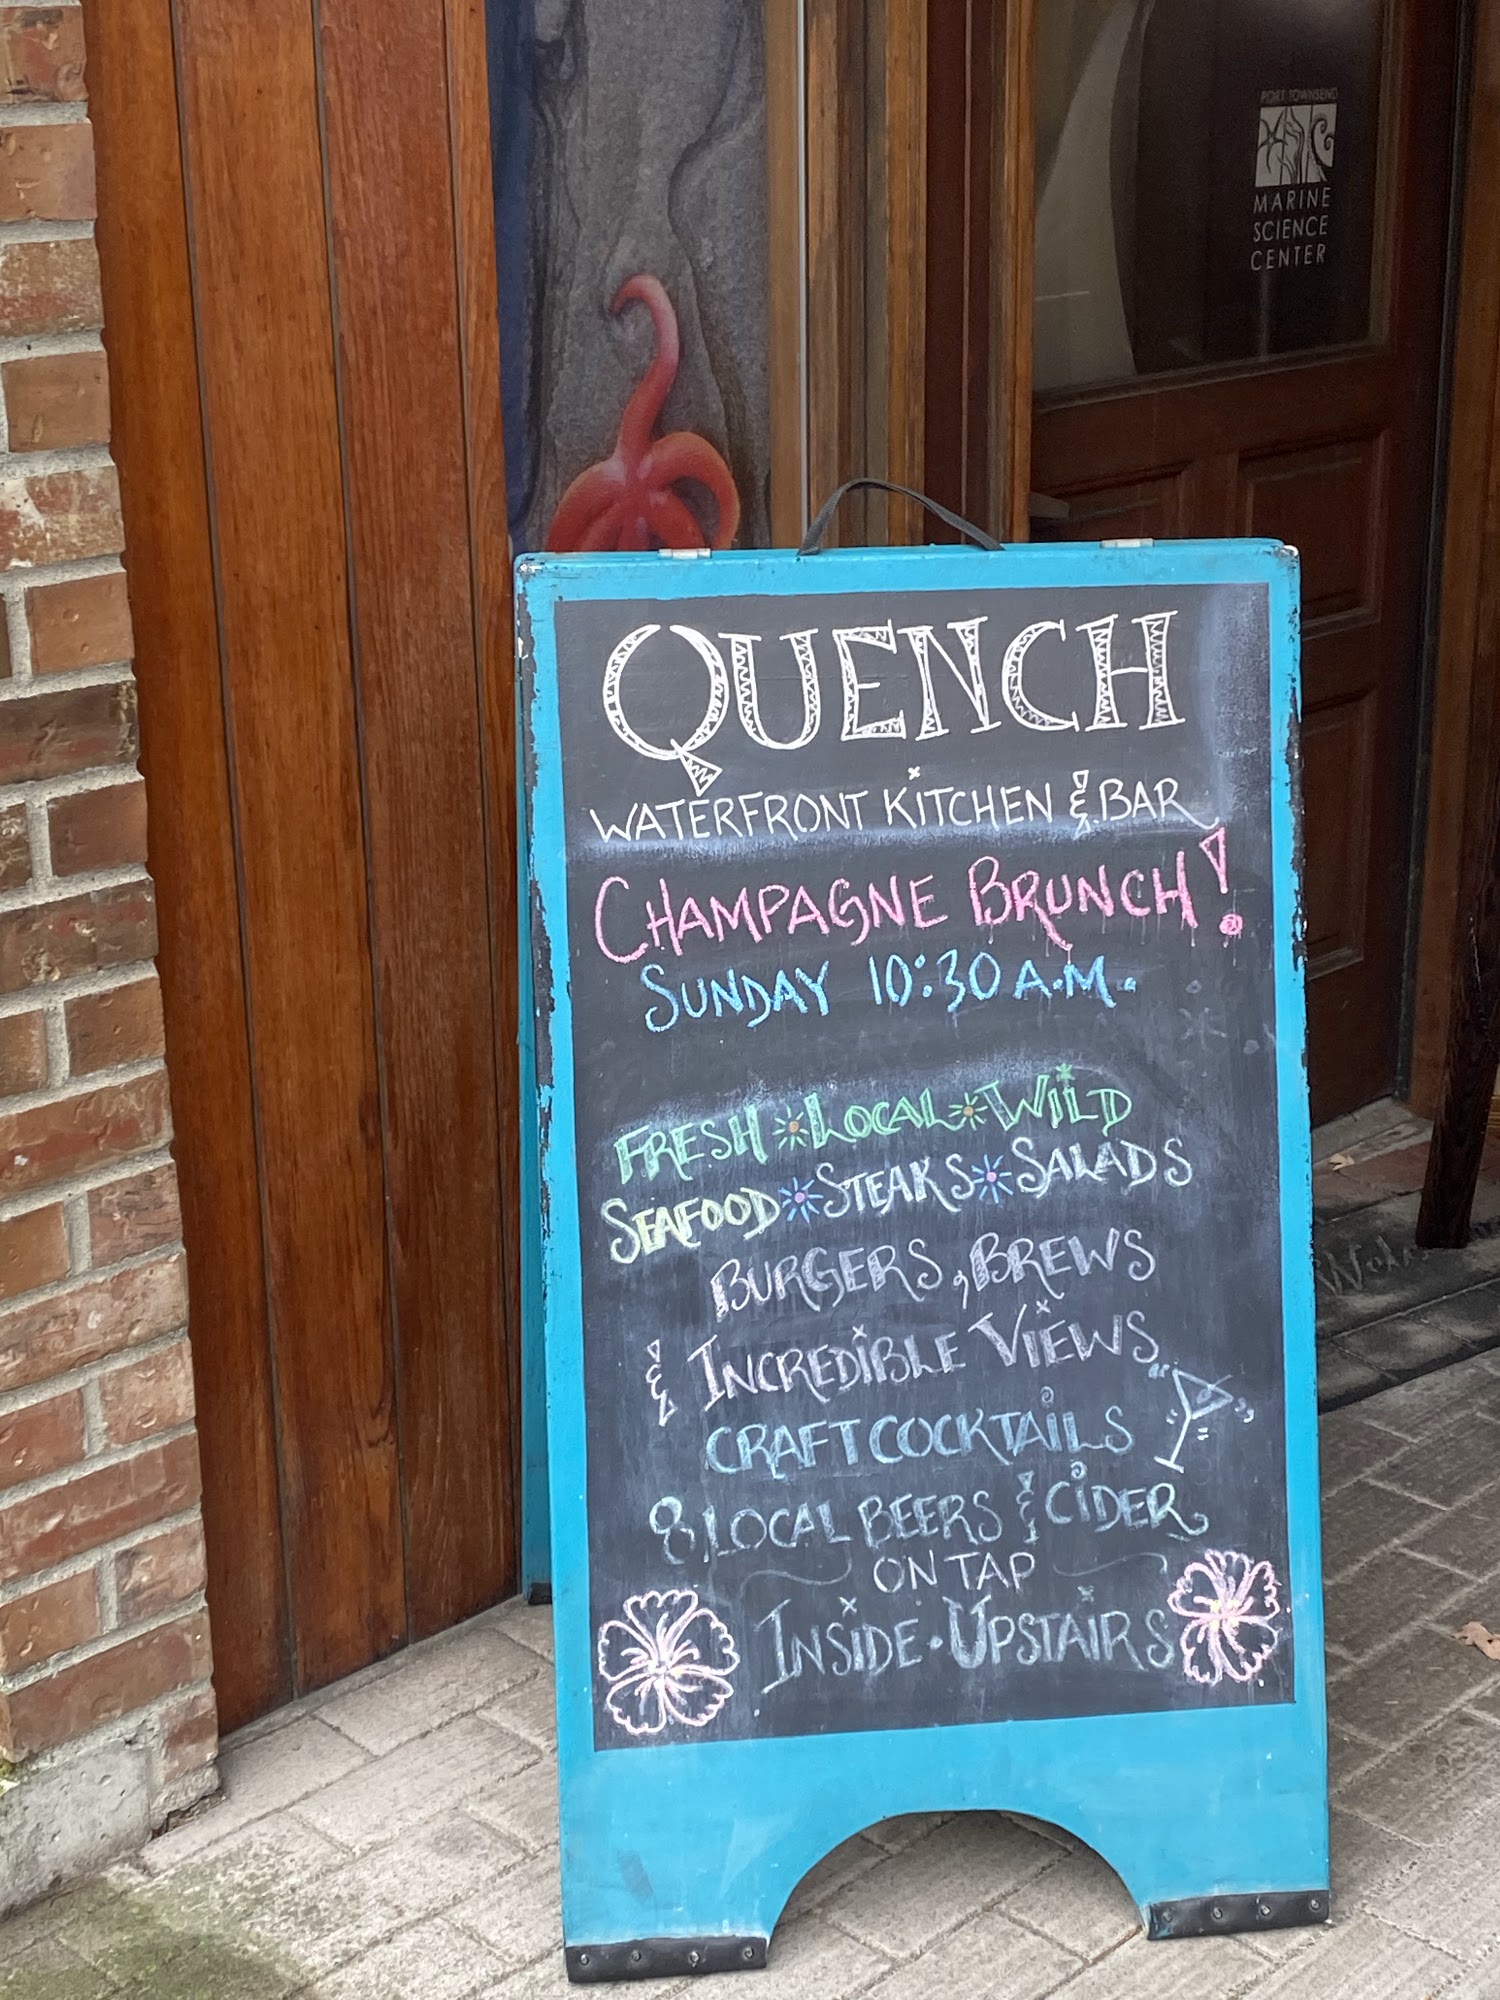 PORT TOWNSEND
MARINE
SCIENCE
CENTER
QUENCH
WATERFRONT KITCHEN & BAR
CHAMPAGNE BRUNCH!
SUNDAY 10:30 A.M.
FRESH LOCAL WILD
SEAFOOD STEAKS SALADS
BURGERS, BREWS
& INCREDIBLE VIEWS
CRAFT COCKTAILS
8 LOCAL BEERS & CIDER
ON TAP
INSIDE • UPSTAIRS